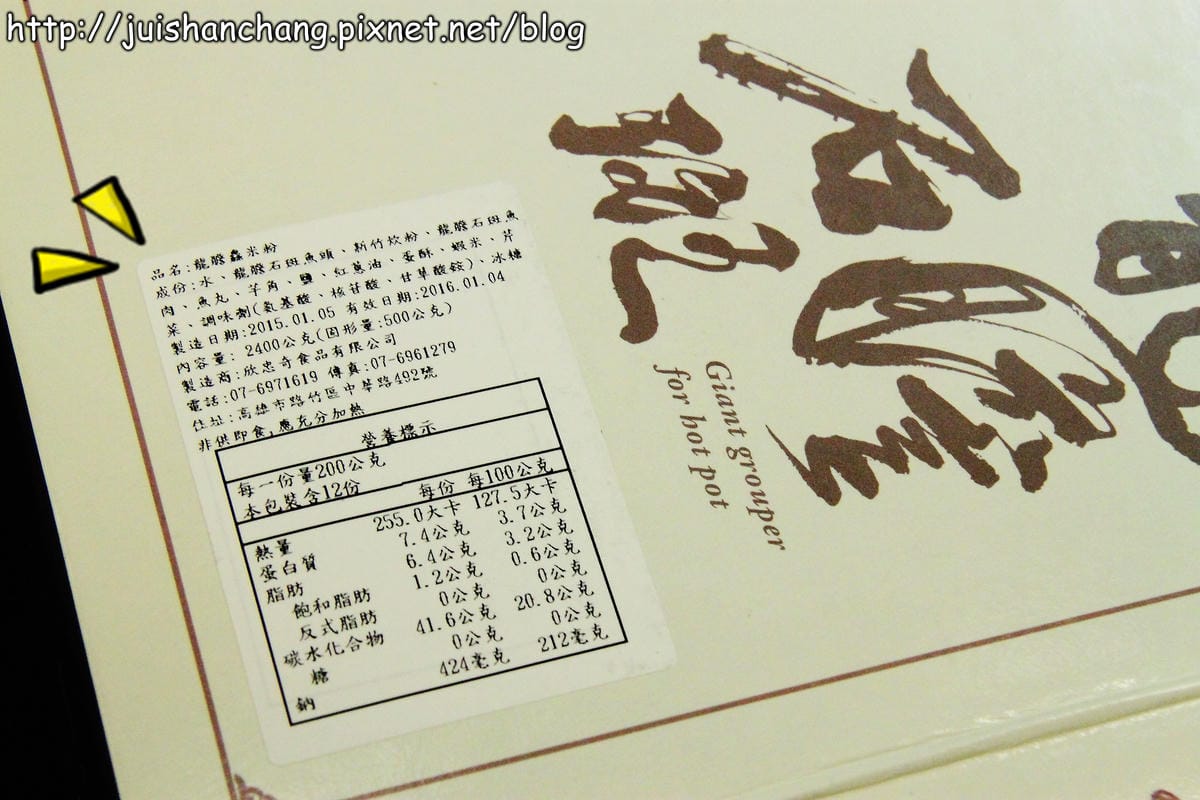 http://juishanchang.pixnet.net/blog
品名:龍膽鱻米粉
成份:水、龍膽石斑魚頭、新竹炊粉、龍膽石斑魚
肉、魚丸、芋角、鹽、紅蔥油、蛋酥、蝦米、芹
菜、調味劑(氨基酸、核苷酸、甘草酸銨)、冰糖
製造日期:2015.01.05 有效日期:2016.01.04
內容量: 2400公克(固形量:500公克)
製造商:欣忠奇食品有限公司
電話:07-6971619 傳真:07-6961279
住址:高雄市路竹區中華路492號
非供即食,應充分加熱
營養標示
每一份量200公克
本包裝含12份
每份 每100公克
熱量 255.0大卡 127.5大卡
蛋白質 7.4公克 3.7公克
脂肪 6.4公克 3.2公克
飽和脂肪 1.2公克 0.6公克
反式脂肪 0公克 0公克
碳水化合物 41.6公克 20.8公克
糖 0公克 0公克
鈉 424毫克 212毫克
龍膽
石斑
Giant grouper
for hot pot